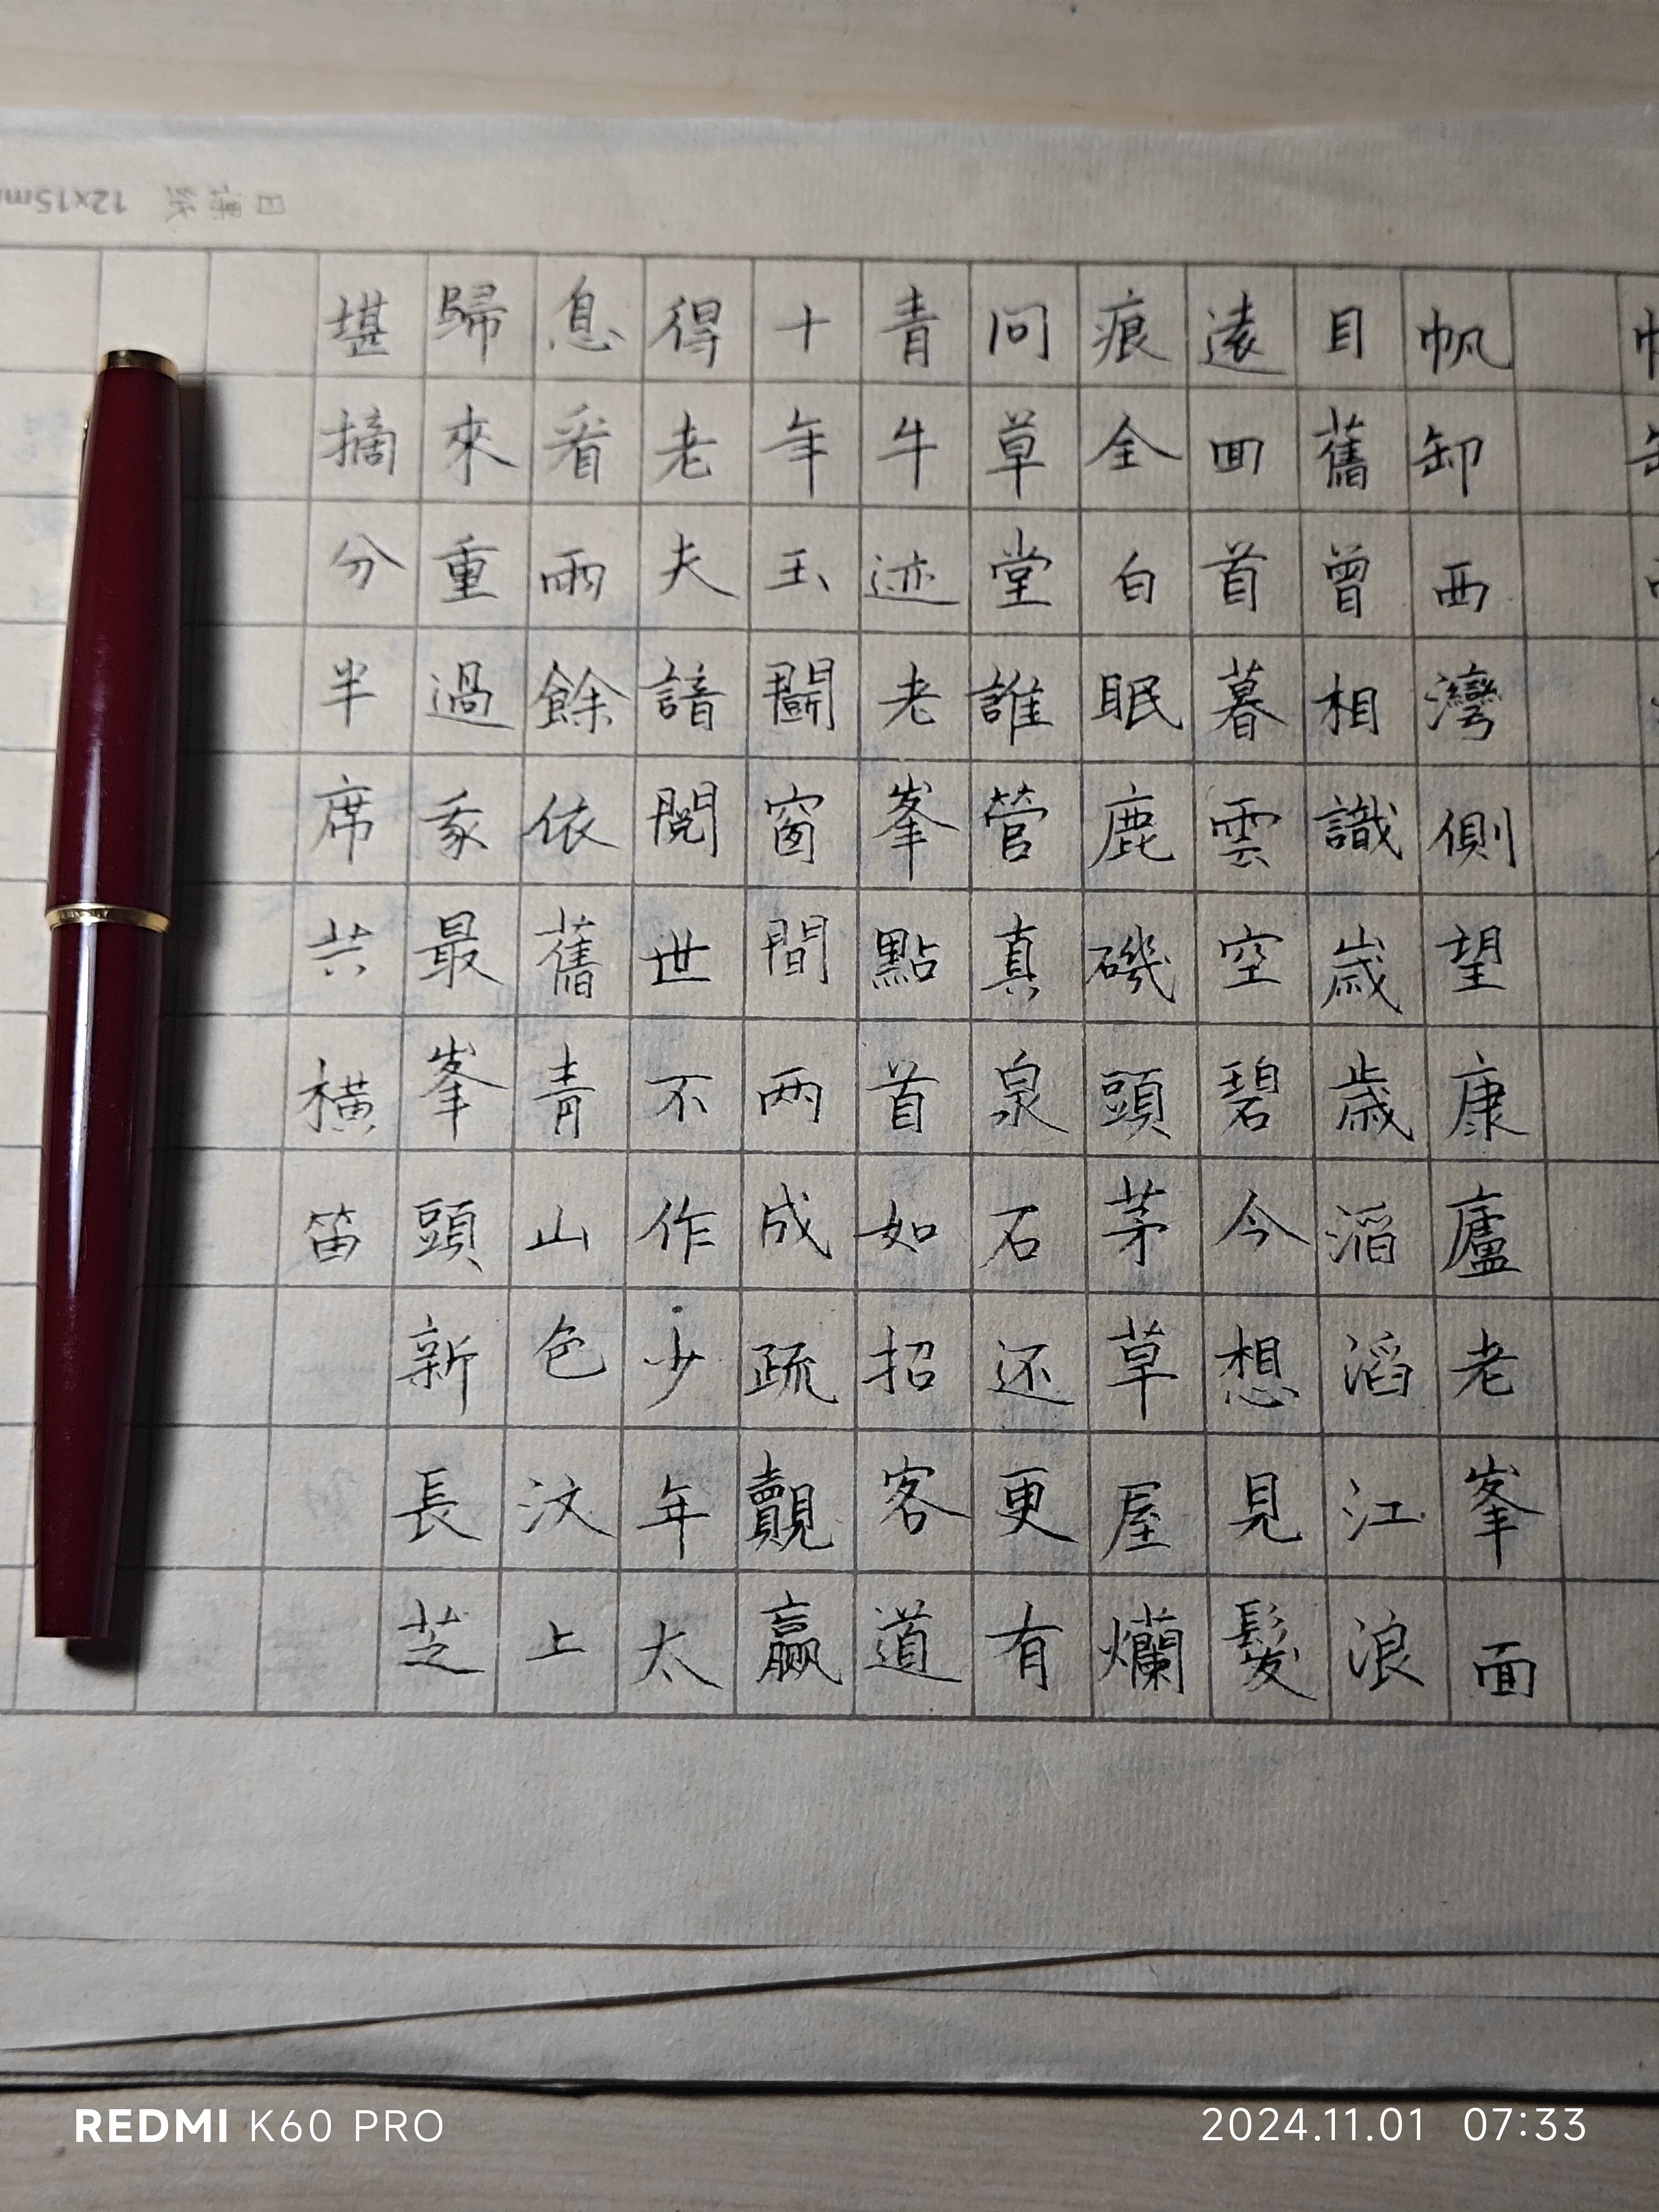 日課紙 12x15m
帆卸西灣側望康廬老峯面
目舊曾相識歲歲滔滔江浪
遠囬首暮雲空碧今想見髮
痕全白眠鹿磯頭茅草屋爛
問草堂誰管真泉石还更有
青牛迹老峯點首如招客道
十年玉闗窗間两成疏覿贏
得老夫諳閱世不作少年太
息看雨餘依舊青山色汶上
歸來重過最峯頭新長芝
堪摘分半席共横笛
REDMI K60 PRO
2024.11.01 07:33